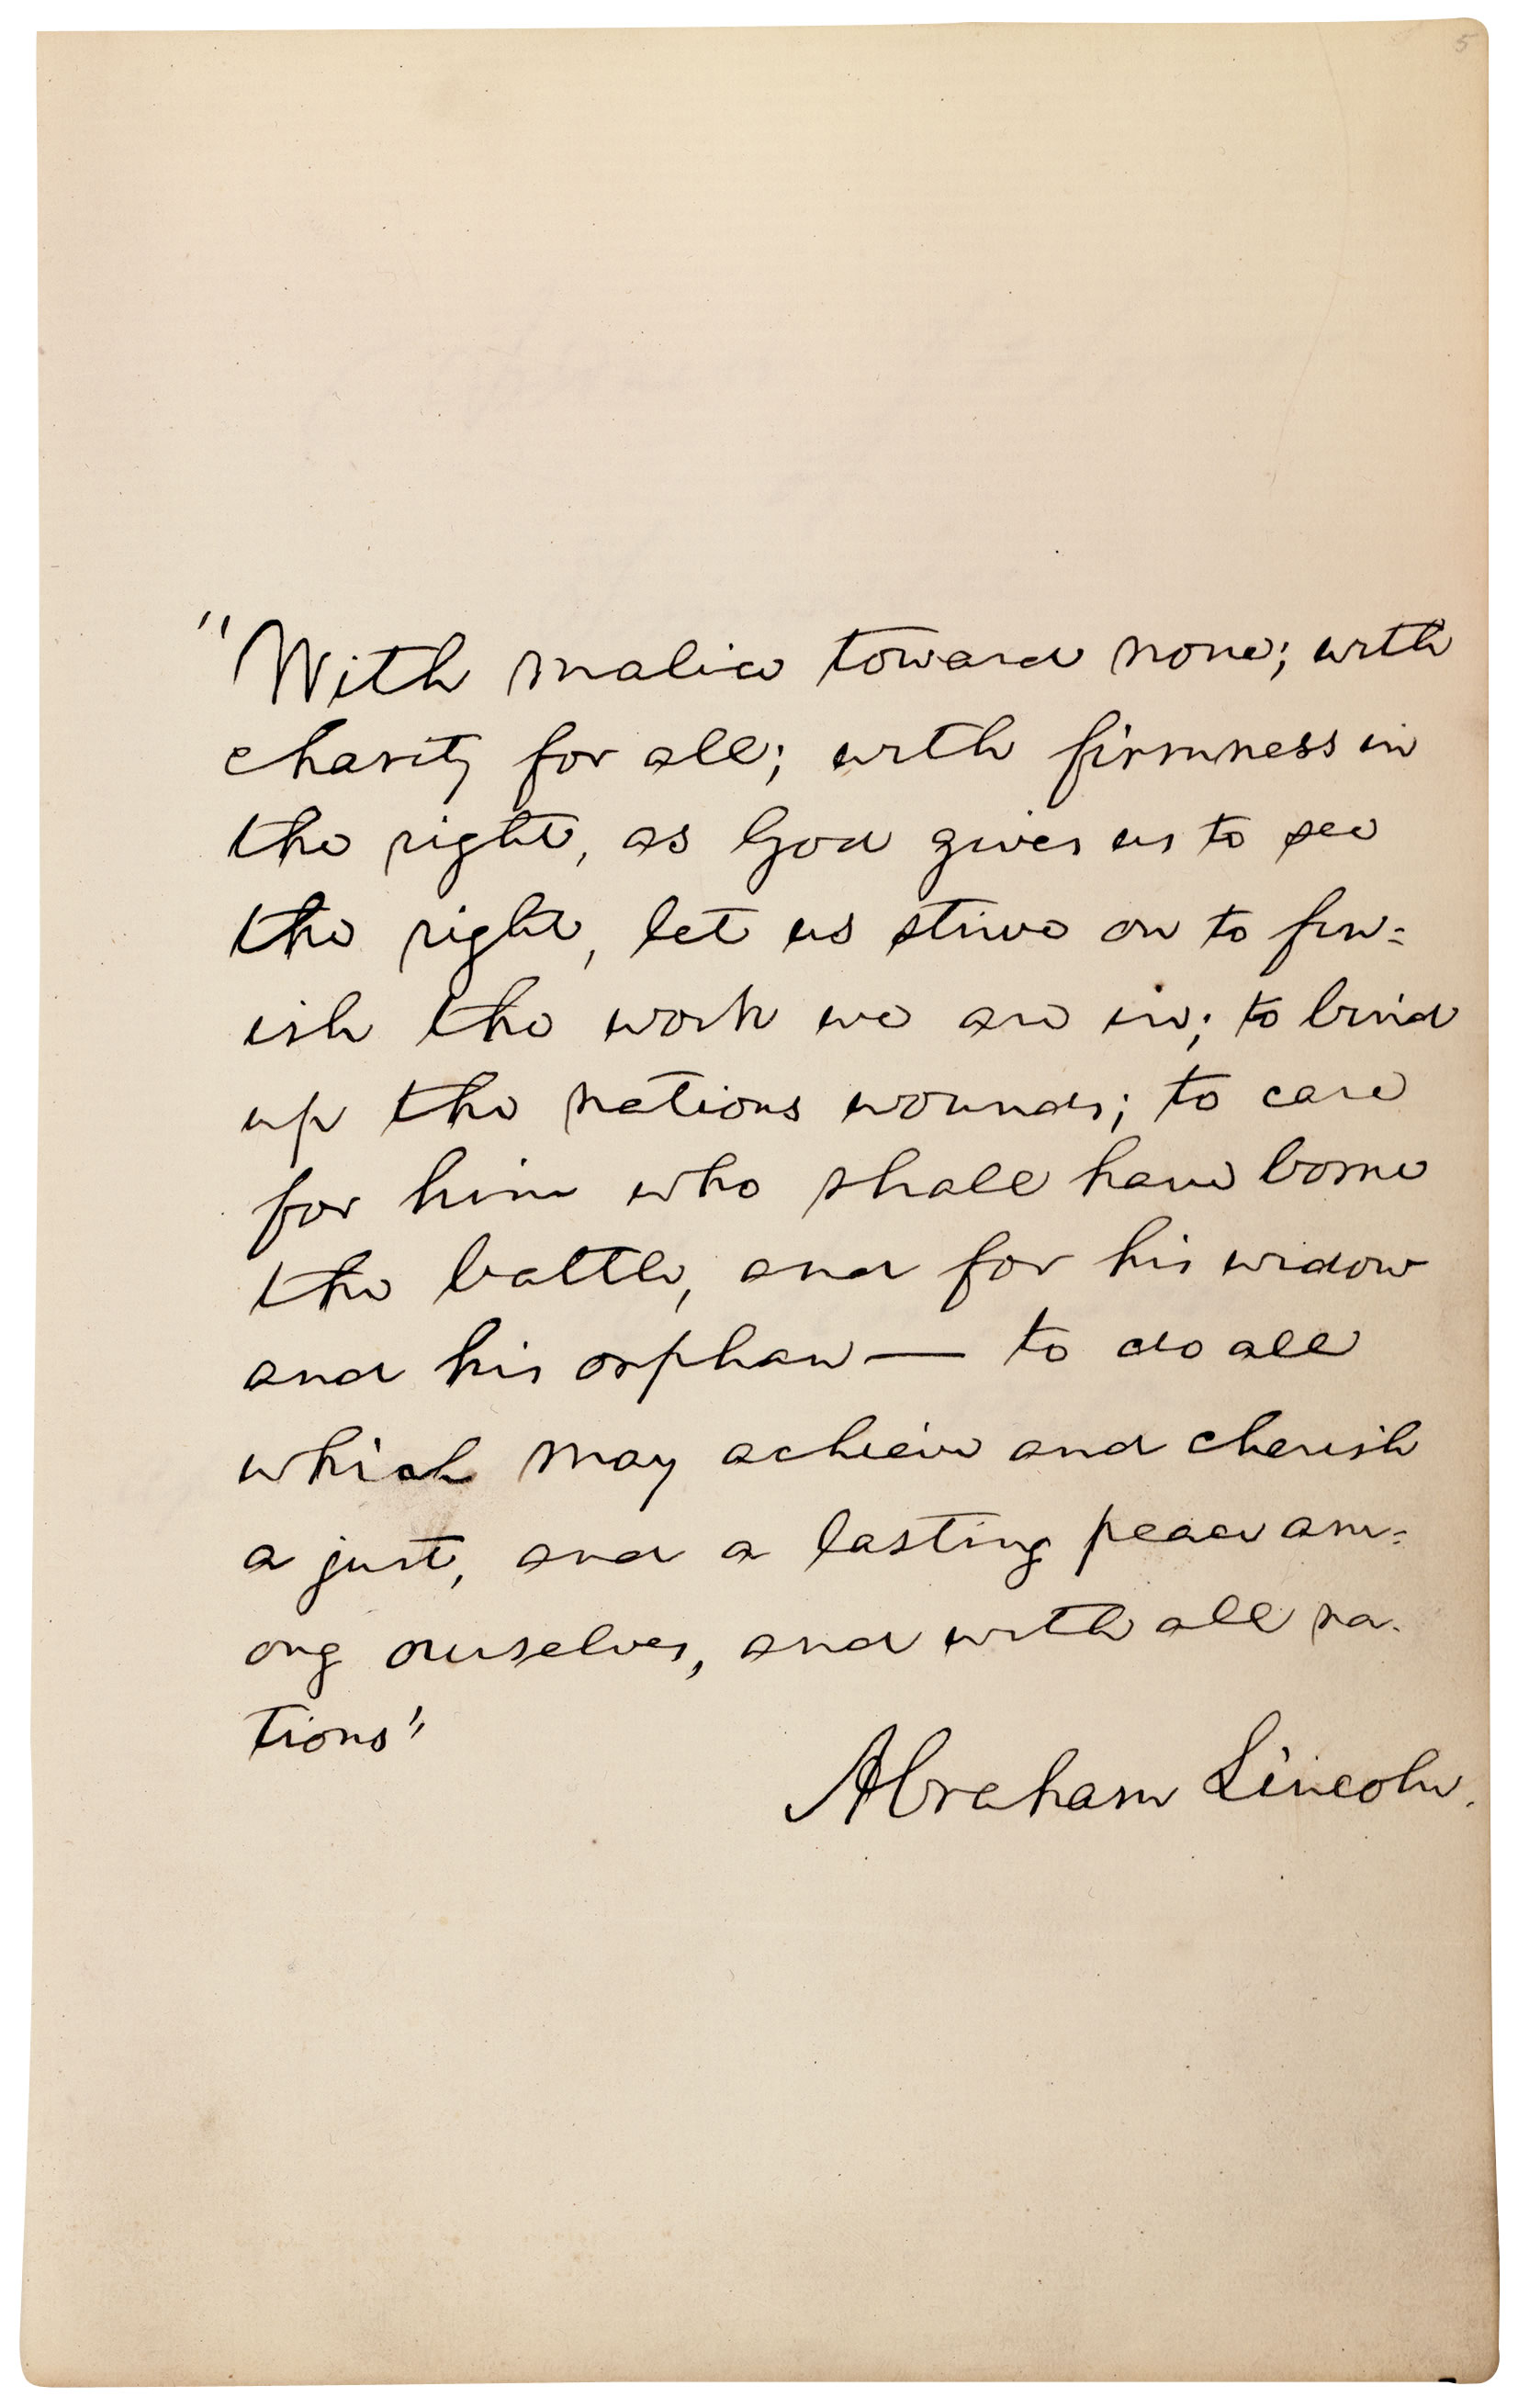 5
"With malice toward none; with
charity for all; with firmness in
the right, as God gives us to see
the right, let us strive on to fin=
ish the work we are in; to bind
up the nations wounds; to care
for him who shall have borne
the battle, and for his widow
and his orphan — to do all
which may achieve and cherish
a just, and a lasting peace am=
ong ourselves, and with all na-
tions"
Abraham Lincoln.